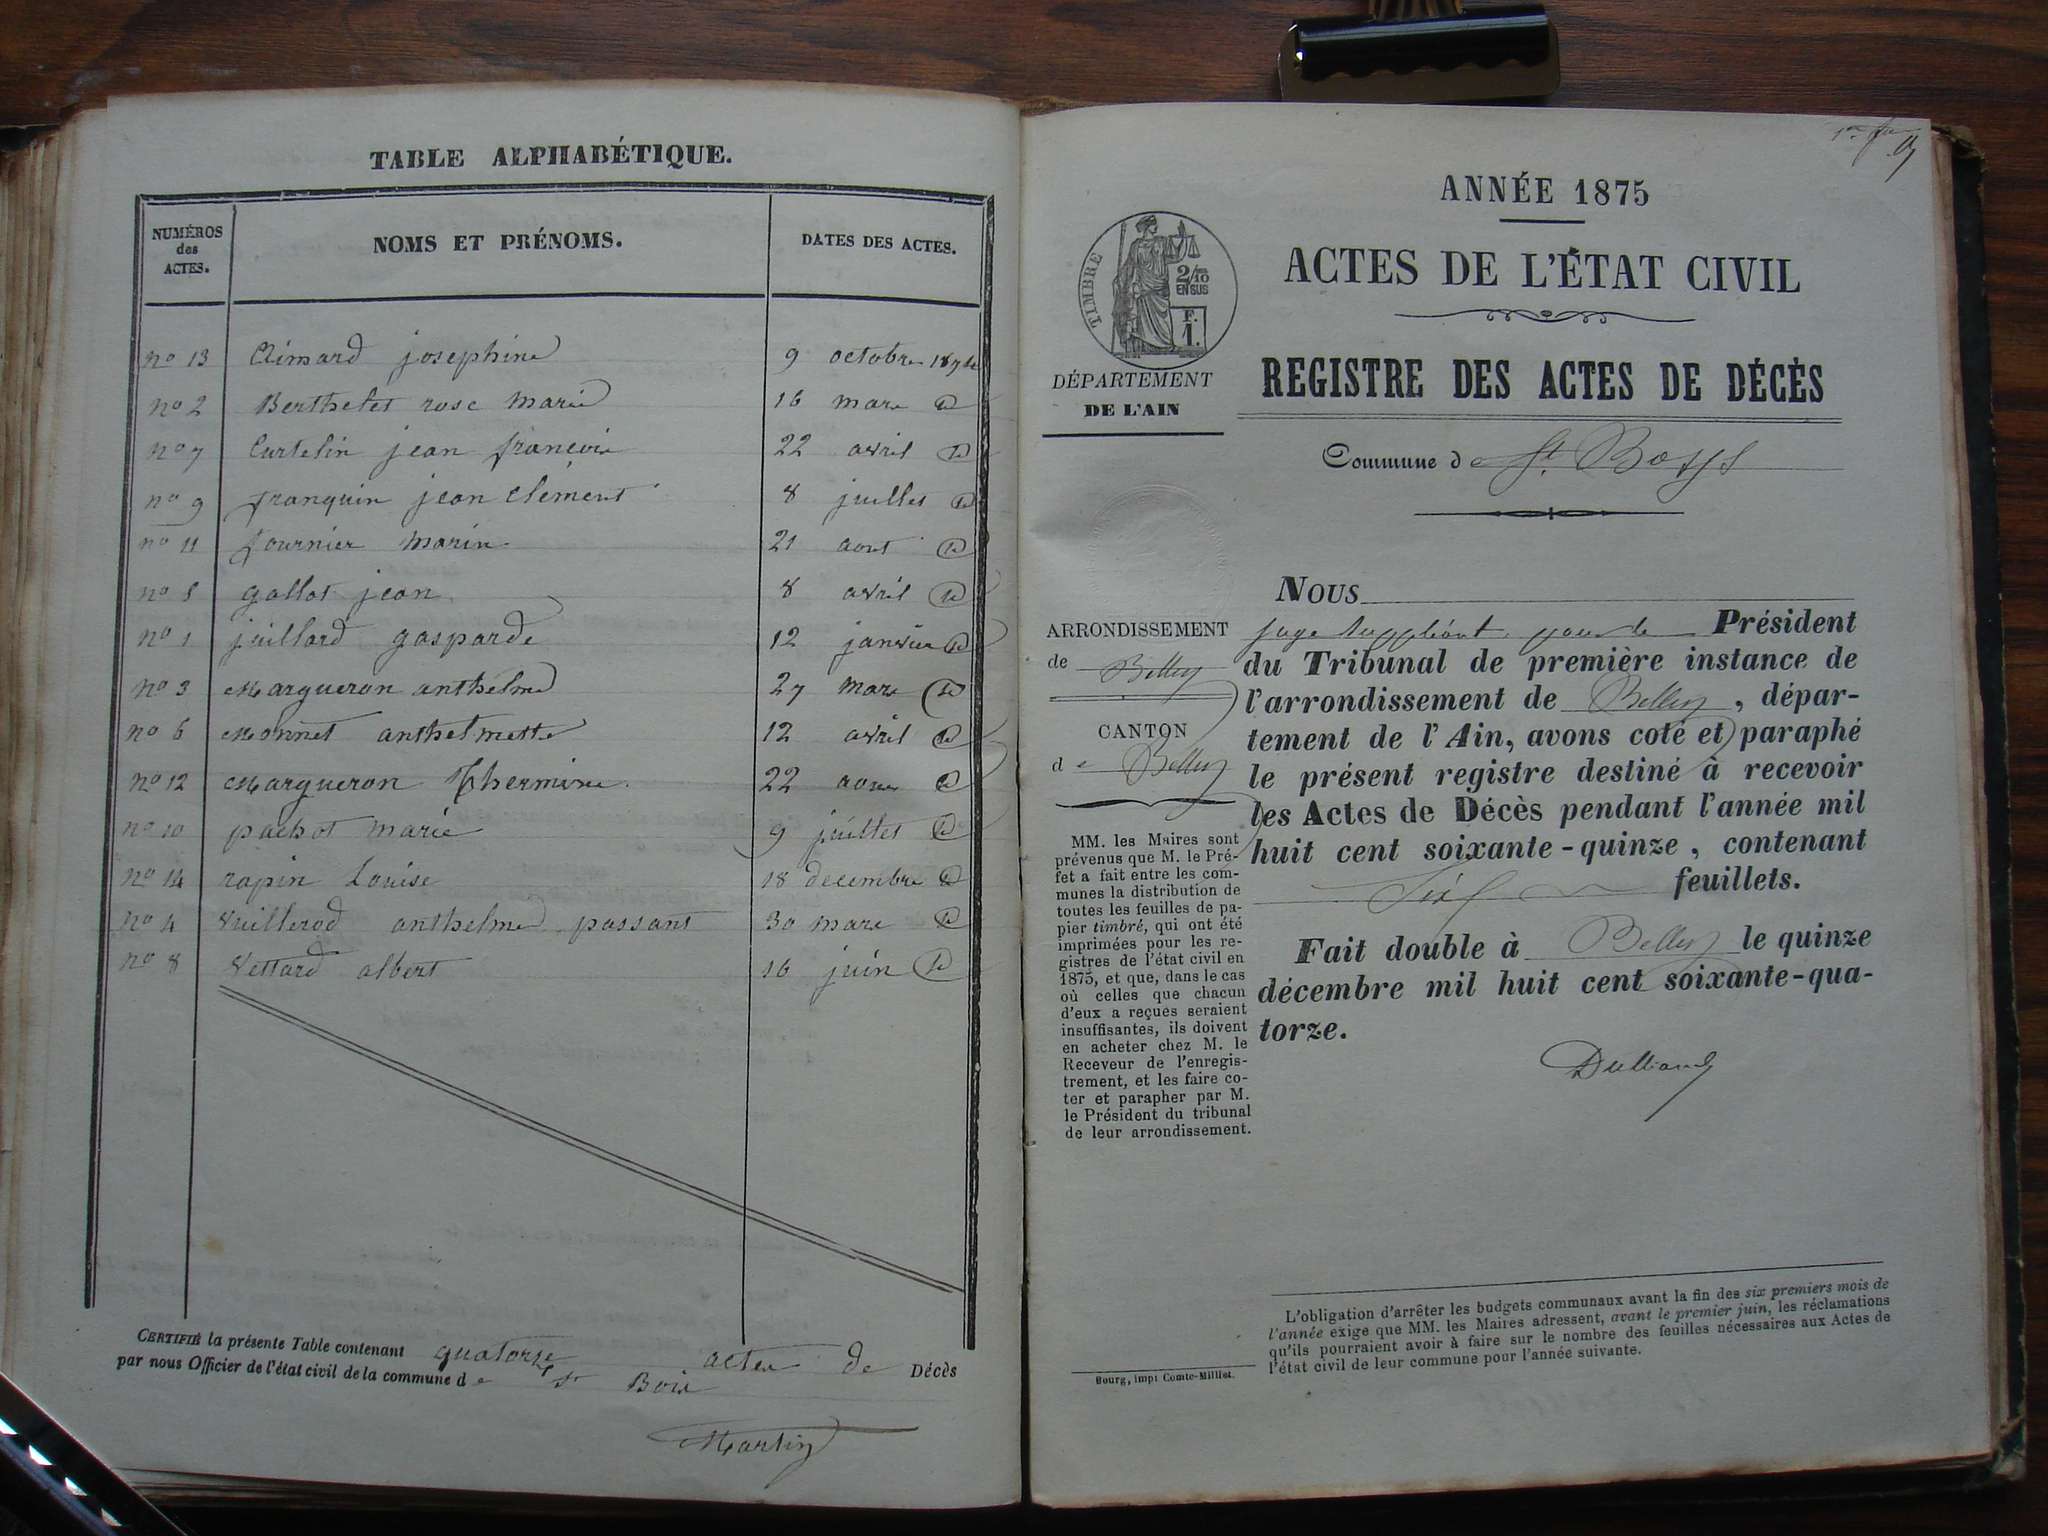 TABLE ALPHABÉTIQUE.
NUMÉROS des ACTES. NOMS ET PRÉNOMS. DATES DES ACTES.
no 13 Aimard josephine 9 octobre 1874
no 2 Berthelet rose Marie 16 mars
no 7 Curtelin jean françois 22 avril
no 9 franquin jean clément 8 juillet
no 11 fournier Marin 21 aout
no 5 gallot jean 8 avril
no 1 juillard gasparde 12 janvier
no 3 Margueron anthelme 27 mars
no 6 Monnet anthelmette 12 avril
no 12 Margueron 22 aout
no 10 pachot marie 9 juillet
no 14 rapin Louise 18 decembre
no 4 Vuillerod anthelme passant 30 mars
no 8 Vettard albert 16 juin
CERTIFIÉ la présente Table contenant quatorze actes de Décès
par nous Officier de l'état civil de la commune de St Bois
Martin
ANNÉE 1875
ACTES DE L'ÉTAT CIVIL
TIMBRE
2/10
EN SUS
F.
1.
DÉPARTEMENT
DE L'AIN
REGISTRE DES ACTES DE DÉCÈS
Commune de St. Boys
ARRONDISSEMENT
de Belley
CANTON
de Belley
MM. les Maires sont
prévenus que M. le Pré-
fet a fait entre les com-
munes la distribution de
toutes les feuilles de pa-
pier timbré, qui ont été
imprimées pour les re-
gistres de l'état civil en
1875, et que, dans le cas
où celles que chacun
d'eux a reçues seraient
insuffisantes, ils doivent
en acheter chez M. le
Receveur de l'enregis-
trement, et les faire co-
ter et parapher par M.
le Président du tribunal
de leur arrondissement.
NOUS
juge suppléant, pour le Président
du Tribunal de première instance de
l'arrondissement de Belley, dépar-
tement de l'Ain, avons coté et paraphé
le présent registre destiné à recevoir
les Actes de Décès pendant l'année mil
huit cent soixante-quinze, contenant
Six feuillets.
Fait double à Belley le quinze
décembre mil huit cent soixante-qua-
torze.
L'obligation d'arrêter les budgets communaux avant la fin des six premiers mois de
l'année exige que MM. les Maires adressent, avant le premier juin, les réclamations
qu'ils pourraient avoir à faire sur le nombre des feuilles nécessaires aux Actes de
l'état civil de leur commune pour l'année suivante.
Bourg, impr Comte-Milliet.